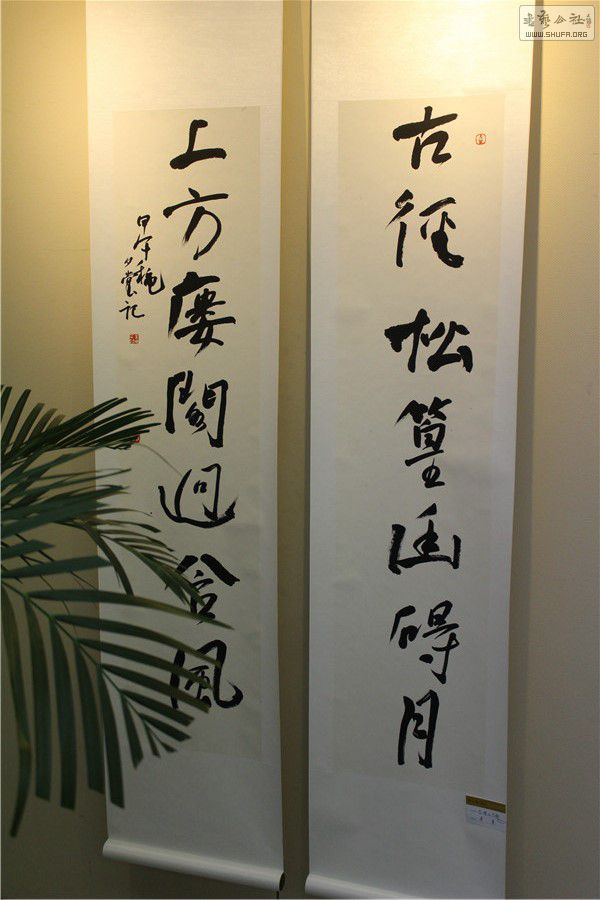 書藝公社
WWW.SHUFA.ORG
古徑松篁幽礙月
上方廔閣迥含風
甲午龝
堂記